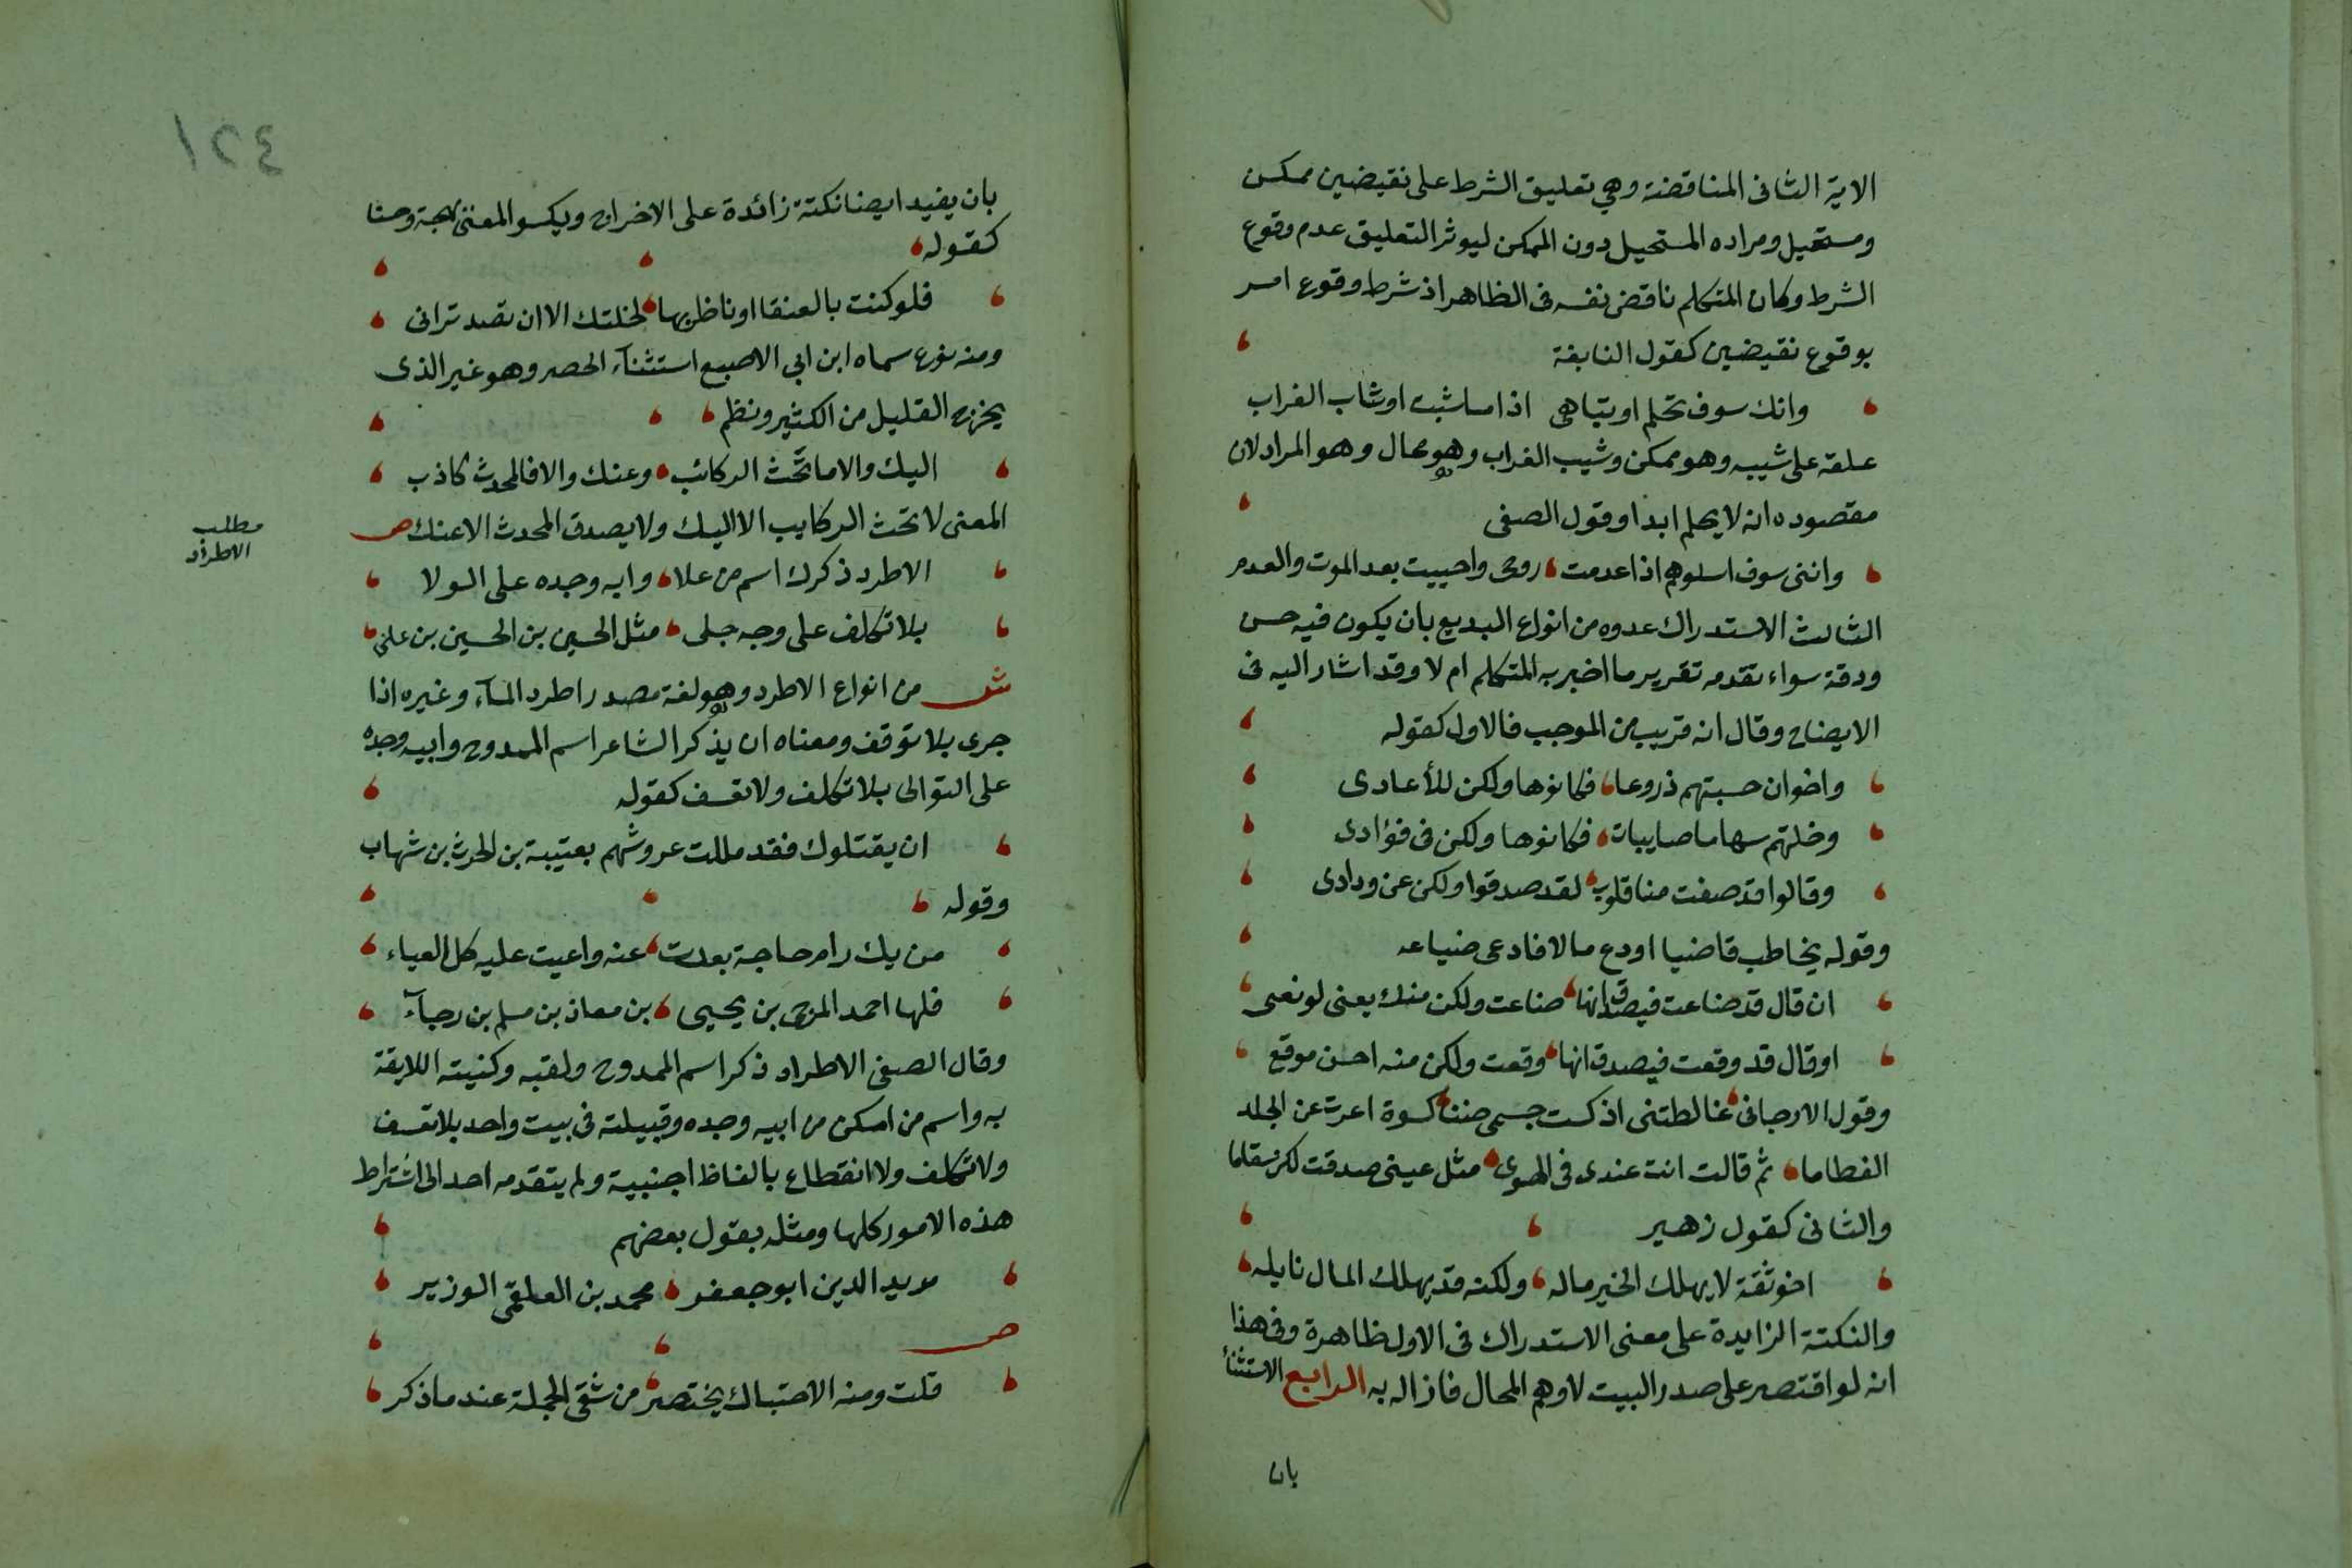 الاية الثانى المناقضة وهي تعليق الشرط على نقيضين ممكن
ومستحيل ومراده المستحيل دون الممكن ليوثر التعليق عدم وقوع
الشرط وكان المتكلم ناقض نفسه فى الظاهر اذ شرط وقوع امر
بوقوع نقيضين كقول النابغة
وانك سوف تحلم او تباهى اذا ما شبت او شاب الغراب
علقه على شيبه وهو ممكن وشيب الغراب وهو محال وهو المراد لان
مقصوده انه لا يحلم ابدا وقول الصفى
وانني سوف اسلوهم اذا عدمت روحى واحييت بعد الموت والعدم
الثالث الاستدراك عدوه من انواع البديع بان يكون فيه حسن
ودقة سواء تقدمه تقرير ما اخبر به المتكلم ام لا وقد اشار اليه فى
الايضاح وقال انه قريب من الموجب فالاول كقوله
واخوان حسبتهم دروعا فكانوها ولكن للأعادى
وخلتهم سهاما صايبات فكانوها ولكن فى فؤادى
وقالوا قد صفت منا قلوب لقد صدقوا ولكن عن ودادى
وقوله يخاطب قاضيا اودع مالا فادعى ضياعه
ان قال قد ضاعت فيصدق انها ضاعت ولكن منك يعنى لو تعى
او قال قد وقعت فيصدق انها وقعت ولكن منه احسن موقع
وقول الارجانى غالطتنى اذ كست جسمى ضنا كسوة اعرت عن الجلد
العظاما ثم قالت انت عندى فى الهوى مثل عينى صدقت لكن سقاما
والثانى كقول زهير
اخو ثقة لا يهلك الخير ماله ولكنه قد يهلك المال نايله
والنكتة الزايدة على معنى الاستدراك فى الاول ظاهرة وفى هذا
انه لو اقتصر على صدر البيت لاوهم المحال فازاله به الرابع الاستثنأ
بان
١٢٤
بان يفيد ايضا نكتة زائدة على الاخراج ويكسو المعنى بهجة وحسنا
كقوله
فلو كنت بالعنقا او ناظريها لخلتك الا ان تصد ترانى
ومنه نوع سماه ابن ابي الاصبع استثنآء الحصر وهو غير الذى
يخرج القليل من الكثير ونظم
اليك والا ما تحث الركائب وعنك والا فالمحدث كاذب
المعنى لا تحث الركايب الا اليك ولا يصدق المحدث الا عنك ص
مطلب
الاطراد
الاطرد ذكرك اسم من علا وابه وجده على الولا
بلا تكلف على وجه جلى مثل الحسين بن الحسين بن على
ش من انواع الاطرد وهو لغة مصدر اطرد المآء وغيره اذا
جرى بلا توقف ومعناه ان يذكر الشاعر اسم الممدوح وابيه وجده
على التوالى بلا تكلف ولا تعسف كقوله
ان يقتلوك فقد مللت عروشهم بعتيبة بن الحرث بن شهاب
وقوله
من يك رام حاجة بعدت عنه واعيت عليه كل العياء
فلها احمد المرجى بن يحيى بن معاذ بن مسلم بن رجآء
وقال الصفى الاطراد ذكر اسم الممدوح ولقبه وكنيته اللايقة
به واسم من امكن من ابيه وجده وقبيلته فى بيت واحد بلا تعسف
ولا تكلف ولا انقطاع بالفاظ اجنبية ولم يتقدمه احد الى اشتراط
هذه الامور كلها ومثله بقول بعضهم
مويد الدين ابو جعفر محمد بن العلقمى الوزير
ص
قلت ومنه الاحتباك يختصر من شقى الجملة عند ما ذكر